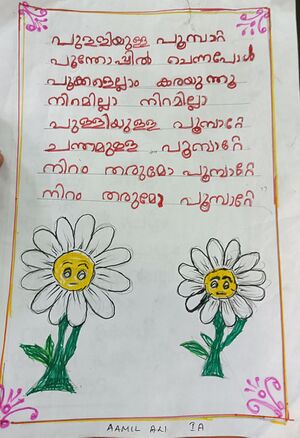 പുള്ളിയുള്ള പൂമ്പാറ്റ
പൂന്തോപ്പിൽ ചെന്നപോൾ
പൂക്കളെല്ലാം കരയുന്നൂ
നിറമില്ലാ നിറമില്ലാ
പുള്ളിയുള്ള പൂമ്പാറ്റേ
ചന്തമുള്ള പൂമ്പാറ്റേ
നിറം തരുമോ പൂമ്പാറ്റേ
നിറം തരുമോ പൂമ്പാറ്റേ
AAMIL ALI IA